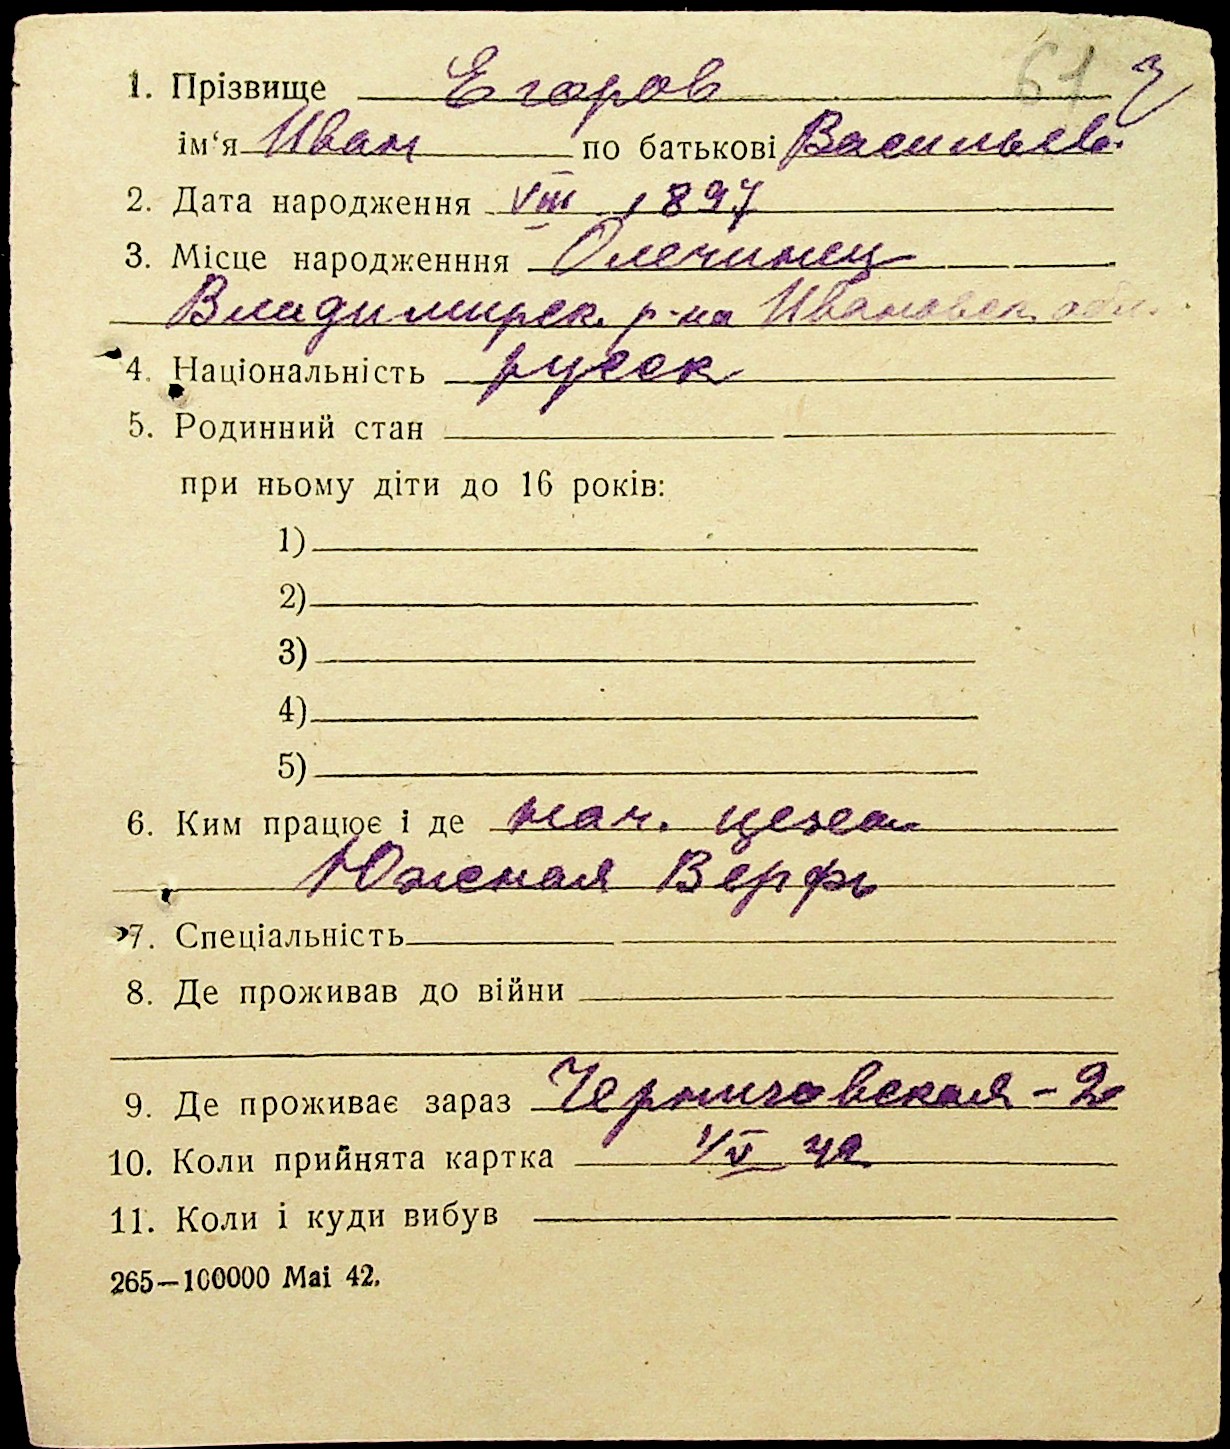 61
1. Прізвище Егоров
ім‘я Иван по батькові Васильев.
2. Дата народження VIII 1897
3. Місце народженння Олечинец
Владимирск. р-на Ивановск. обл.
4. Національність русск
5. Родинний стан
при ньому діти до 16 років:
1)
2)
3)
4)
5)
6. Ким працює і де нач. цеха
Южная Верфь
7. Спеціальність
8. Де проживав до війни
9. Де проживає зараз Черниговская - 2
10. Коли прийнята картка 1/V 42
11. Коли і куди вибув
265—100000 Mai 42.